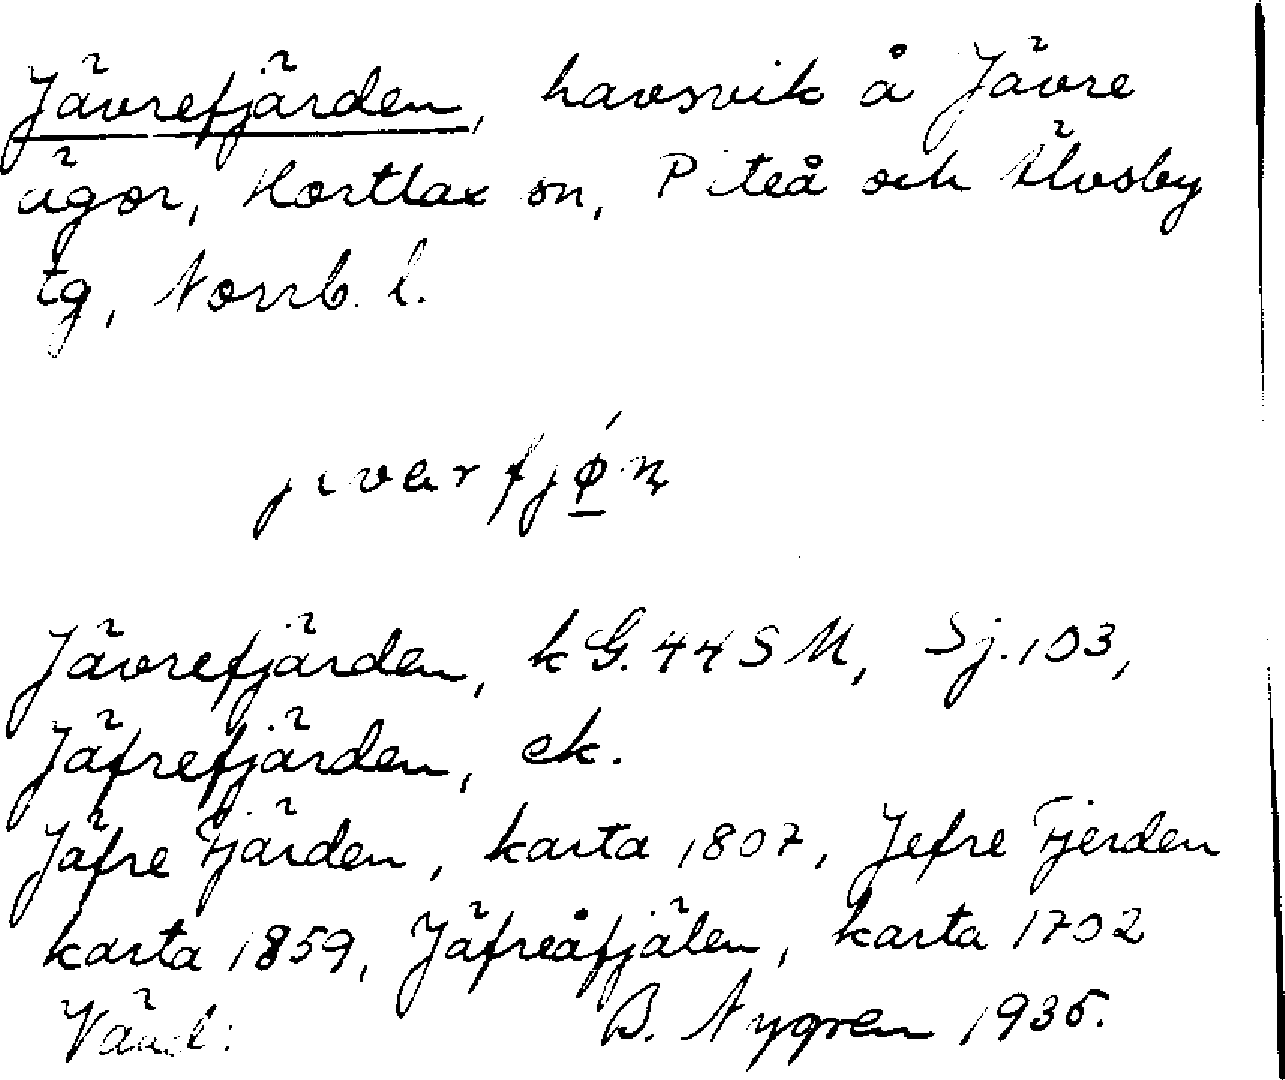 Jävrefjärden, havsvik å Jävre
ägor, Hortlax sn, Piteå och Älvsby
tg, Norrb. l.
Jävrefjärden, kG. 44 S M, Sj. 103,
Jäfrefjärden, ek.
Jäfre Fjärden, karta 1807, Jefre Fjerden
karta 1859, Jäfreåfjälen, karta 1702
Vänd: B. Nygren 1935.